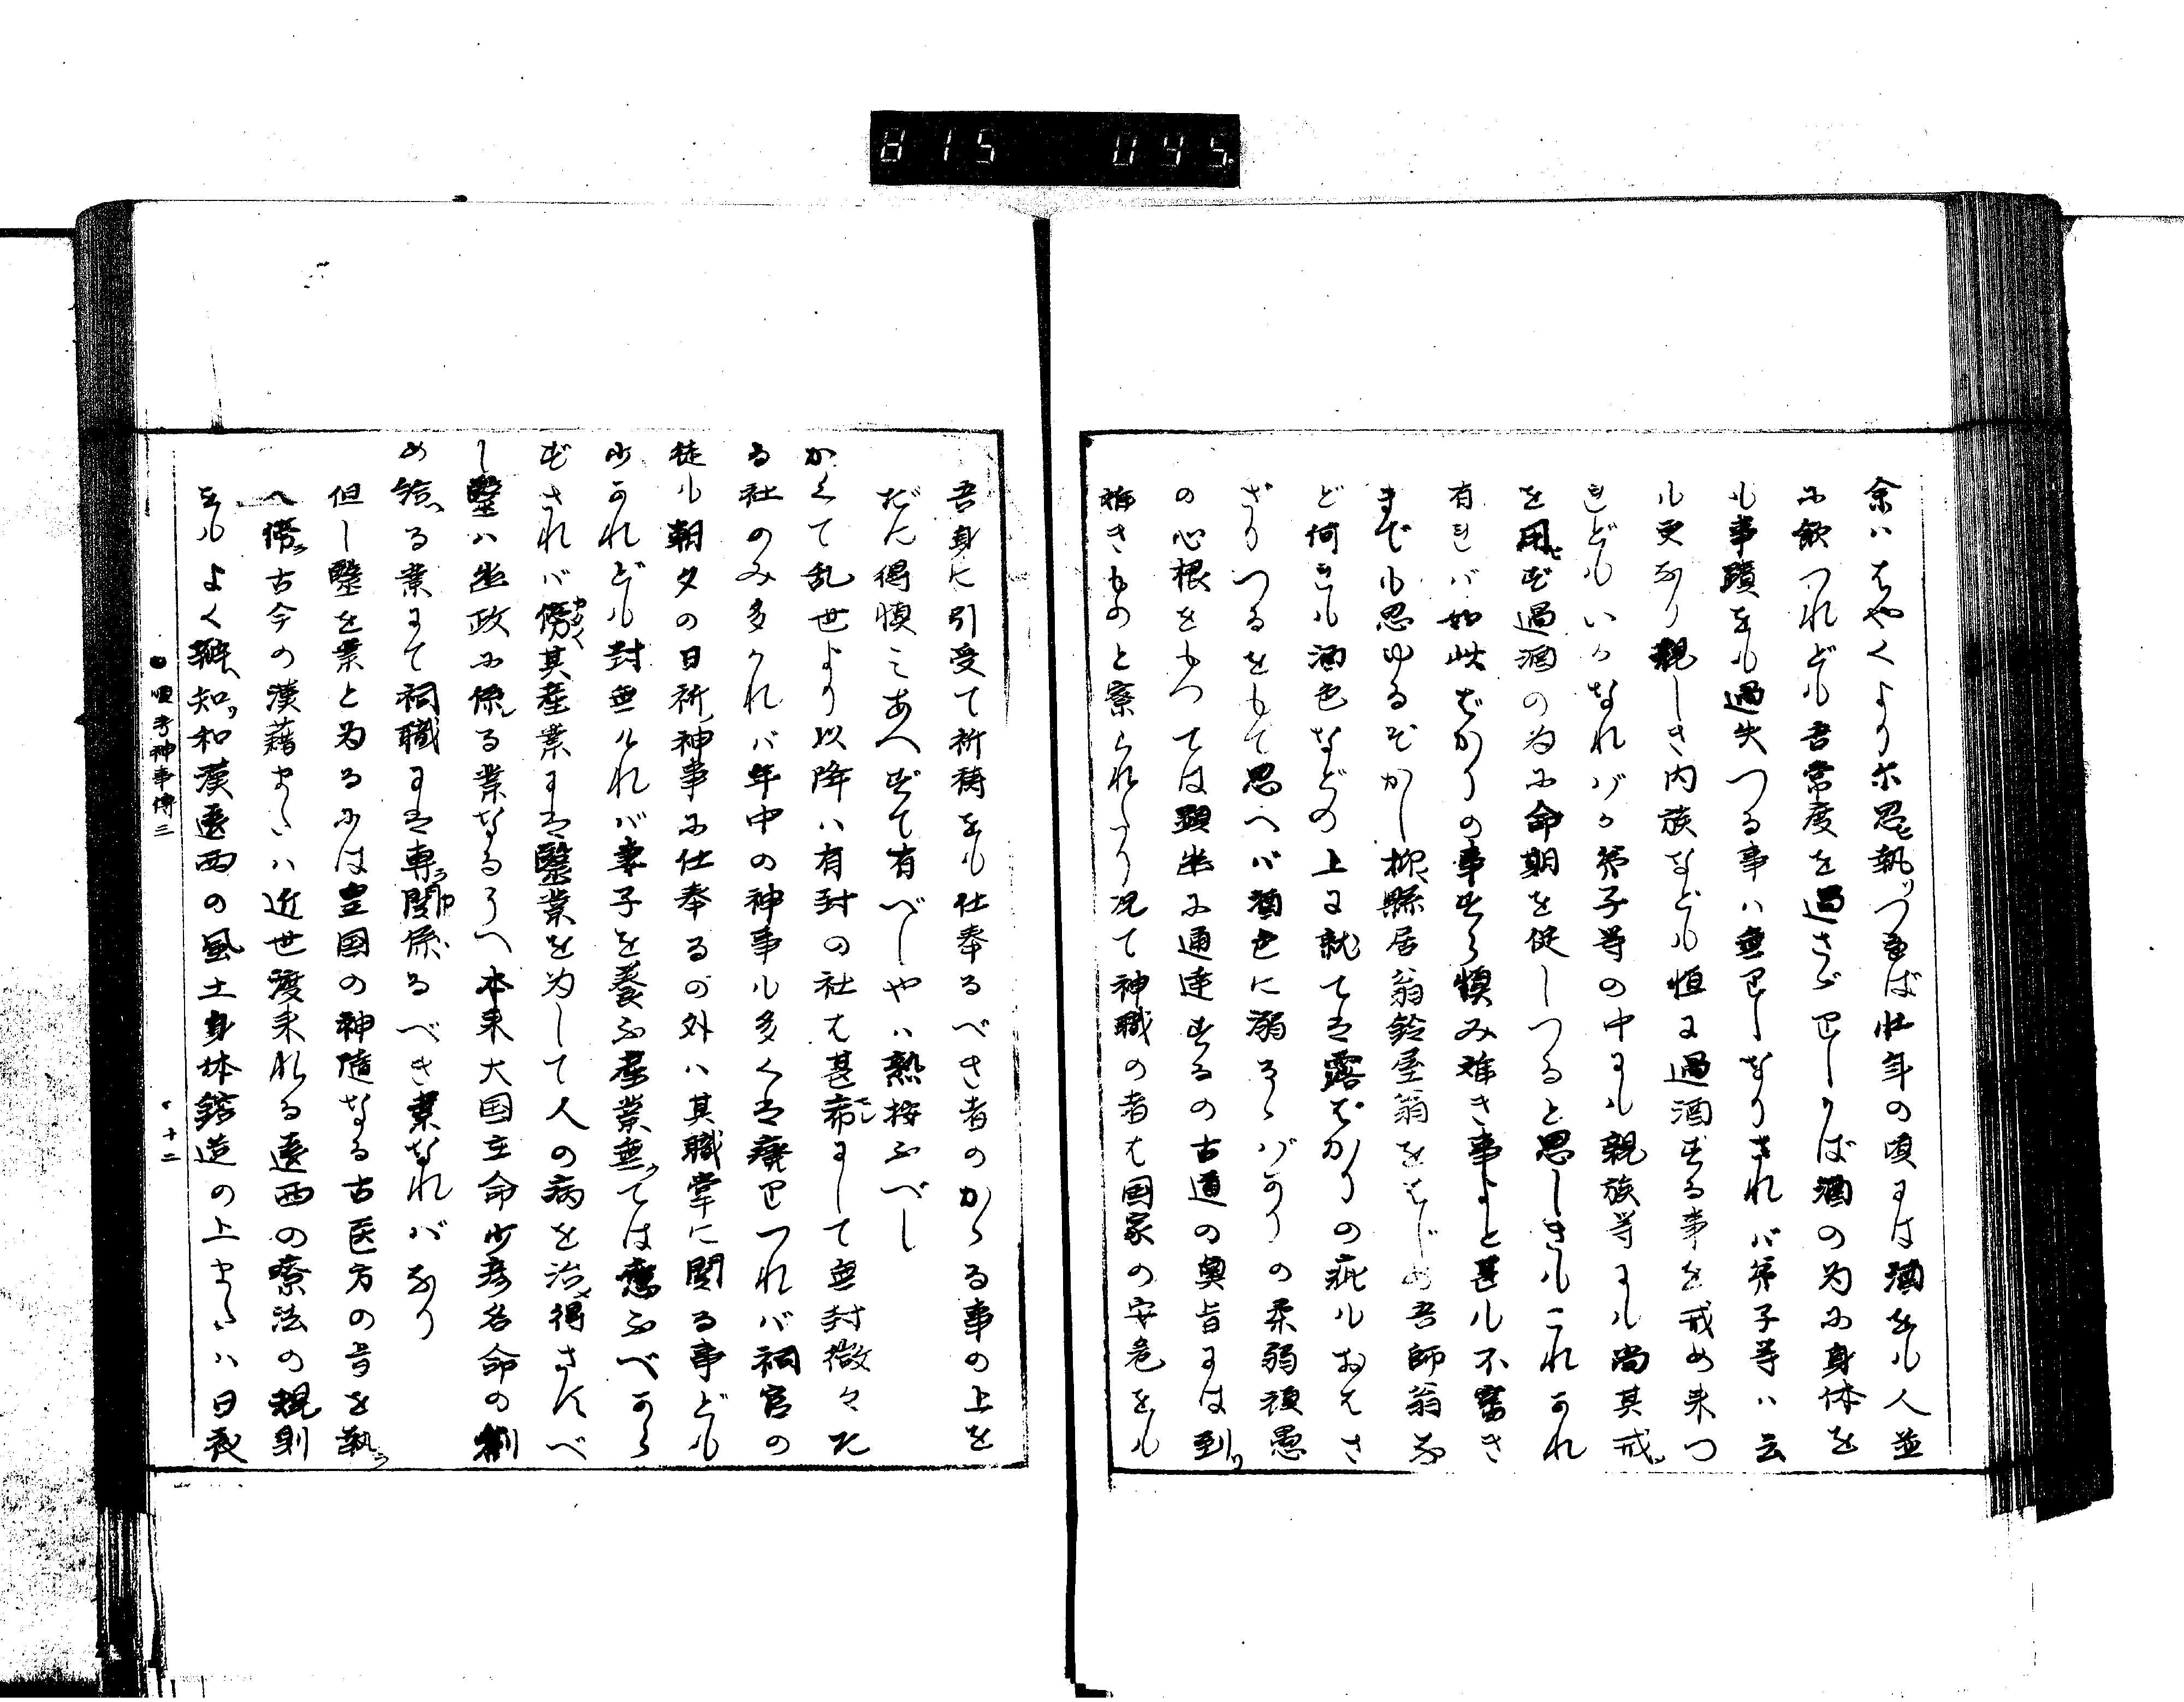 815 045
余ハはやくより尓思ヒ執リつれば壮年の頃には酒をも人並
に飲つれども吾常度を過さゞりしかば酒の為に身体を
も事蹟をも過失つる事ハ無りしなりされバ弟子等ハ云
も更なり親しき内族などにも恒に過酒する事を戒め来つ
れどもいかなれバか弟子等の中にも親族等にも尚其戒
を用ヒず過酒の為に命期を促しつると思しきもこれかれ
有れバ如此ばかりの事すら慎み難き事よと甚も不審き
までも思ゆるぞかし抑県居翁鈴屋翁をはじめ吾師翁な
ど何れも酒色などの上に就ては露ばかりの疵もおはさ
ざりつるをもて思へバ酒色に溺るゝばかりの柔弱頑愚
の心根をもつては顕幽に通達するの古道の奥旨には到リ
難きものと察られたり况て神職の者は国家の安危をも
吾身に引受て祈祷をも仕奉るべき者のかゝる事の上を
だに得慎こあへずて有べしやハ熟按ふべし
かくて乱世より以降ハ有封の社は甚希にして無封微々た
る社のみ多かれバ年中の神事も多くは廃りつれバ祠官の
徒も朝夕の日祈神事に仕奉るの外ハ其職掌に関る事ども
少かれども封無ければ妻子を養ふ産業無ては応ふべから
ずされバ傍其産業には医業を為して人の病を治得さすべ
し医ハ幽政に係る業なるうへ本来大国主命少彦名命の創
め給る業にて祠職には専関係るべき業なればなり
但し医を業と為るには皇国の神随なる古医方の旨を執
へ備古今の漢籍または近世渡来れる遠西の療法の規則
をもよく弁知リ和漢遠西の風土身体鋳造の上または日夜
慎考神事伝三
十二